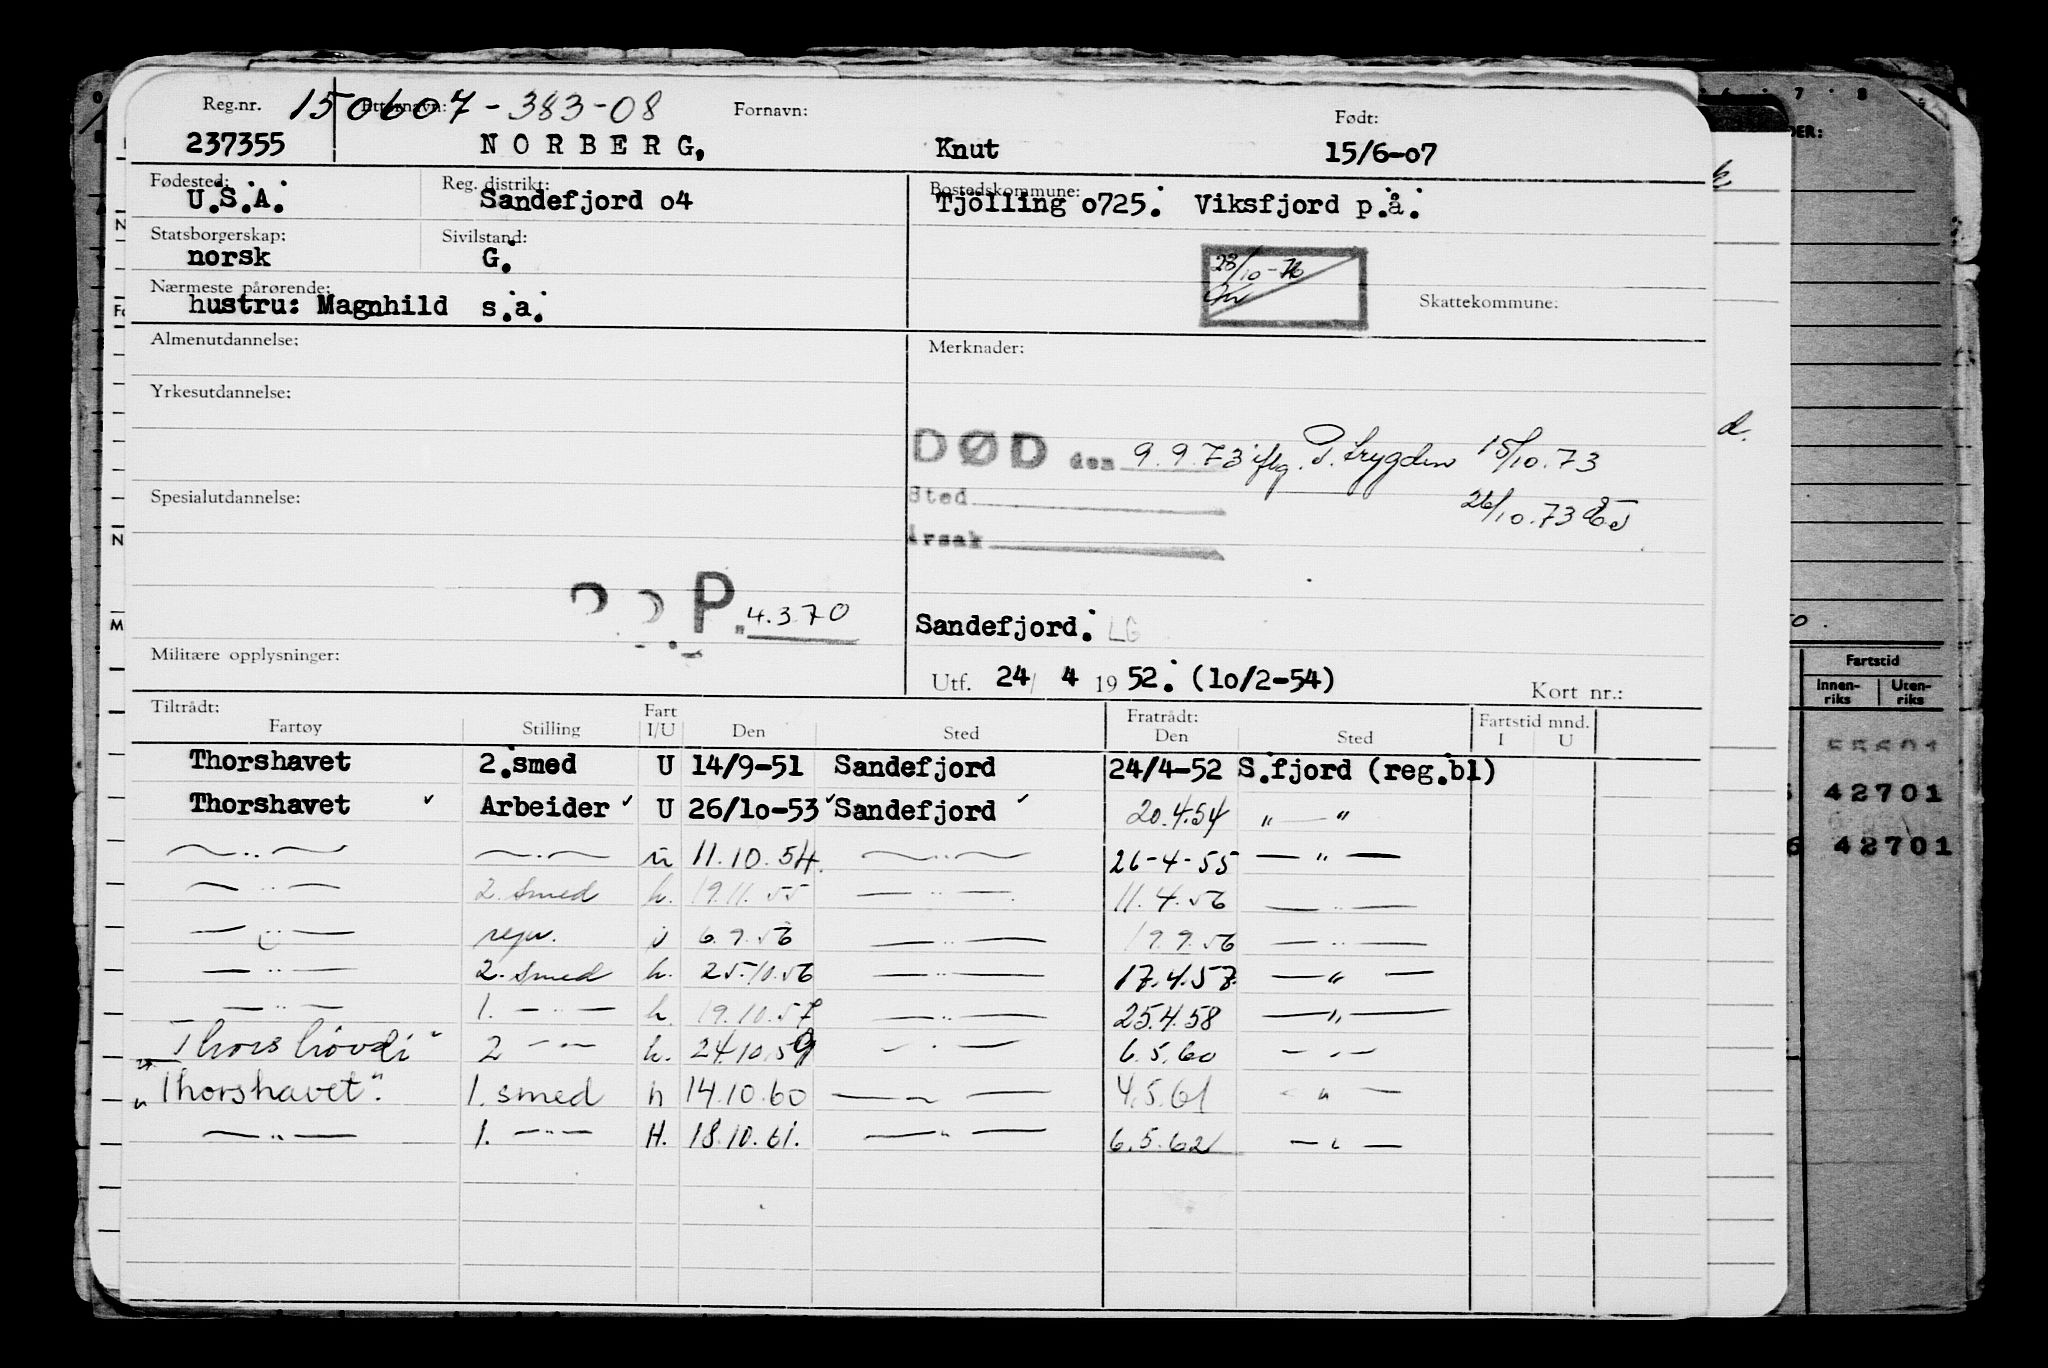 Reg.nr. Etternavn: 150607-383-08 Fornavn: Født:
237355 NORBERG, Knut 15/6-o7
Fødested: Reg. distrikt: Bostedskommune:
U.S.A. Sandefjord o4 Tjölling o725. Viksfjord p.å.
Statsborgerskap: Sivilstand:
norsk G.
28/10-76
Nærmeste pårørende: Skattekommune:
hustru: Magnhild s.a.
Almenutdannelse: Merknader:
Yrkesutdannelse:
DØD den 9.9.73 iflg. P. trygden 15/10.73
Spesialutdannelse: Sted
26/10.73
Årsak
P. 4.3.70
Sandefjord. LG
Militære opplysninger:
Utf. 24/ 4 19 52. (1o/2-54) Kort nr.:
Tiltrådt: Fratrådt: Fartstid mnd.
Fartøy Stilling Fart I/U Den Sted Den Sted I U
Thorshavet 2.smed U 14/9-51 Sandefjord 24/4-52 S.fjord (reg.bl)
Thorshavet ✓ Arbeider ✓ U 26/1o-53 ✓ Sandefjord ✓ 20.4.54 " — "
— " — — " — u 11.10.54. — " — 26-4-55 — " —
— " — 2. smed h. 19.11.55 — " — 11.4.56 — " —
— " — rep. 6.9.56 — " — 19.9.56 — " —
— " — 2. smed h. 25.10.56 — " — 17.4.57. — " —
— " — 1. — " — h. 19.10.57 — " — 25.4.58 — " —
"Thorshövdi" 2 — " — h. 24.10.59 — " — 6.5.60 — " —
"Thorshavet". 1. smed h 14.10.60 — " — 4.5.61 — " —
— " — 1. — " — H. 18.10.61. — " — 6.5.62 — " —
d.
Fartstid
Innen-riks Uten-riks
55601
42701
6 42701